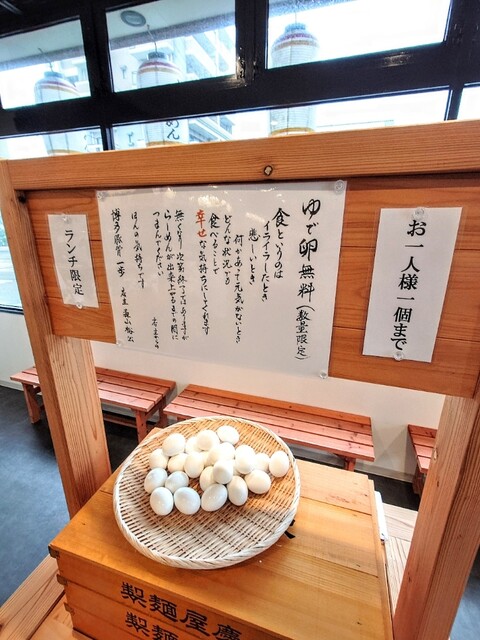 お一人様一個まで
ゆで卵無料(数量限定)
食というのは
イライラしたとき
悲しいとき
何かあって元気がないとき
どんな状況でも
食べることで
幸せな気持ちにしてくれます
無くなり次第終了ではありますが
らーめんが出来上がるまでの間に
つまんでください
ほんの気持ちです
ランチ限定
製麺屋慶
製麺